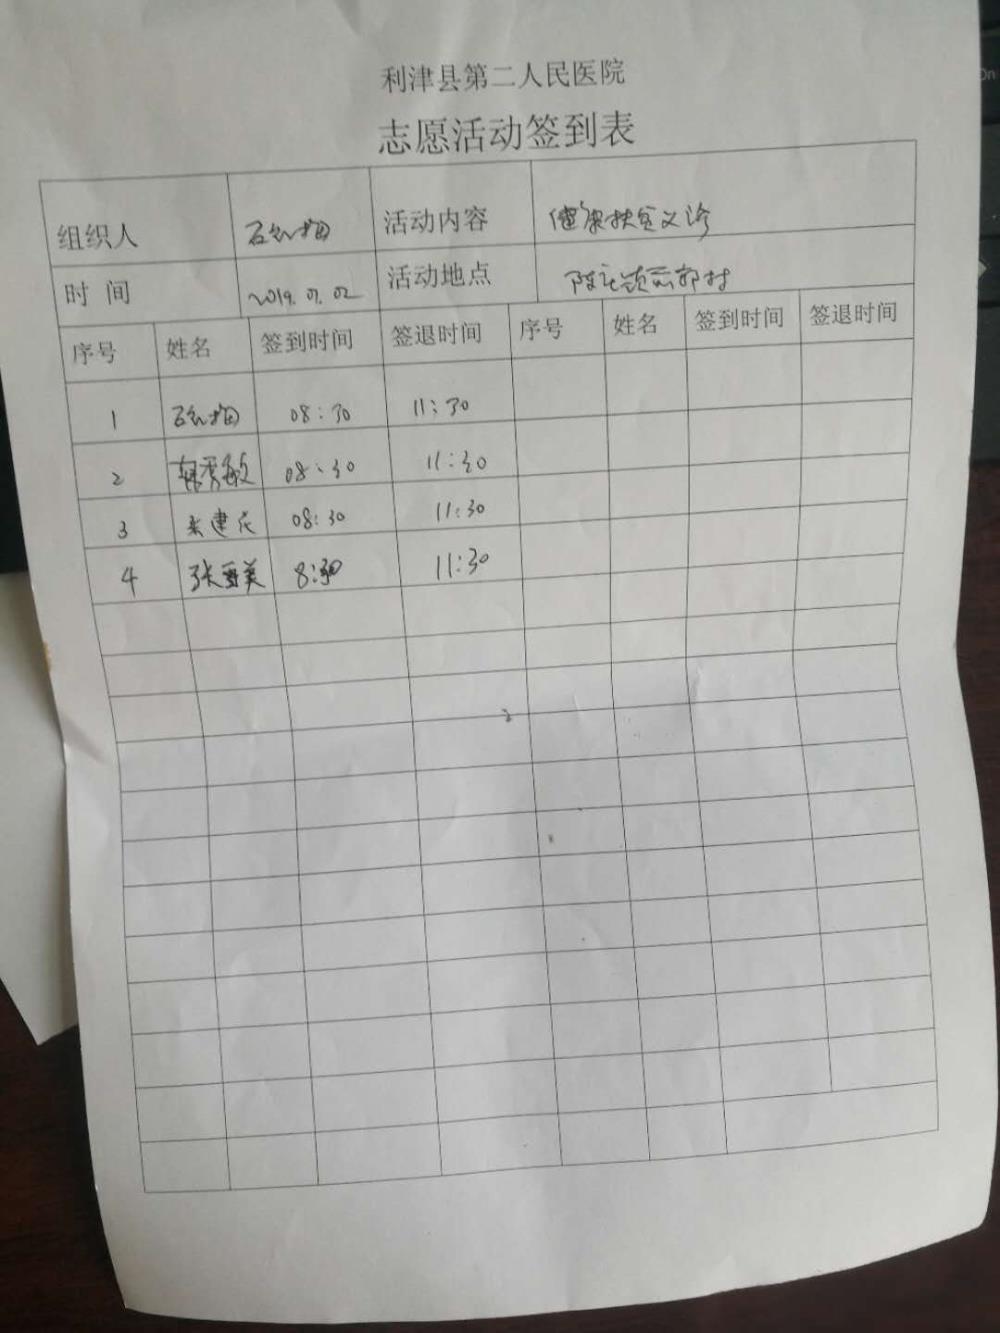 利津县第二人民医院
志愿活动签到表
组织人 活动内容 健康扶贫义诊
时间 2019.01.02 活动地点
序号 姓名 签到时间 签退时间 序号 姓名 签到时间 签退时间
1 08:30 11:30
2 韩秀敏 08:30 11:30
3 08:30 11:30
4 张亚美 8:30 11:30